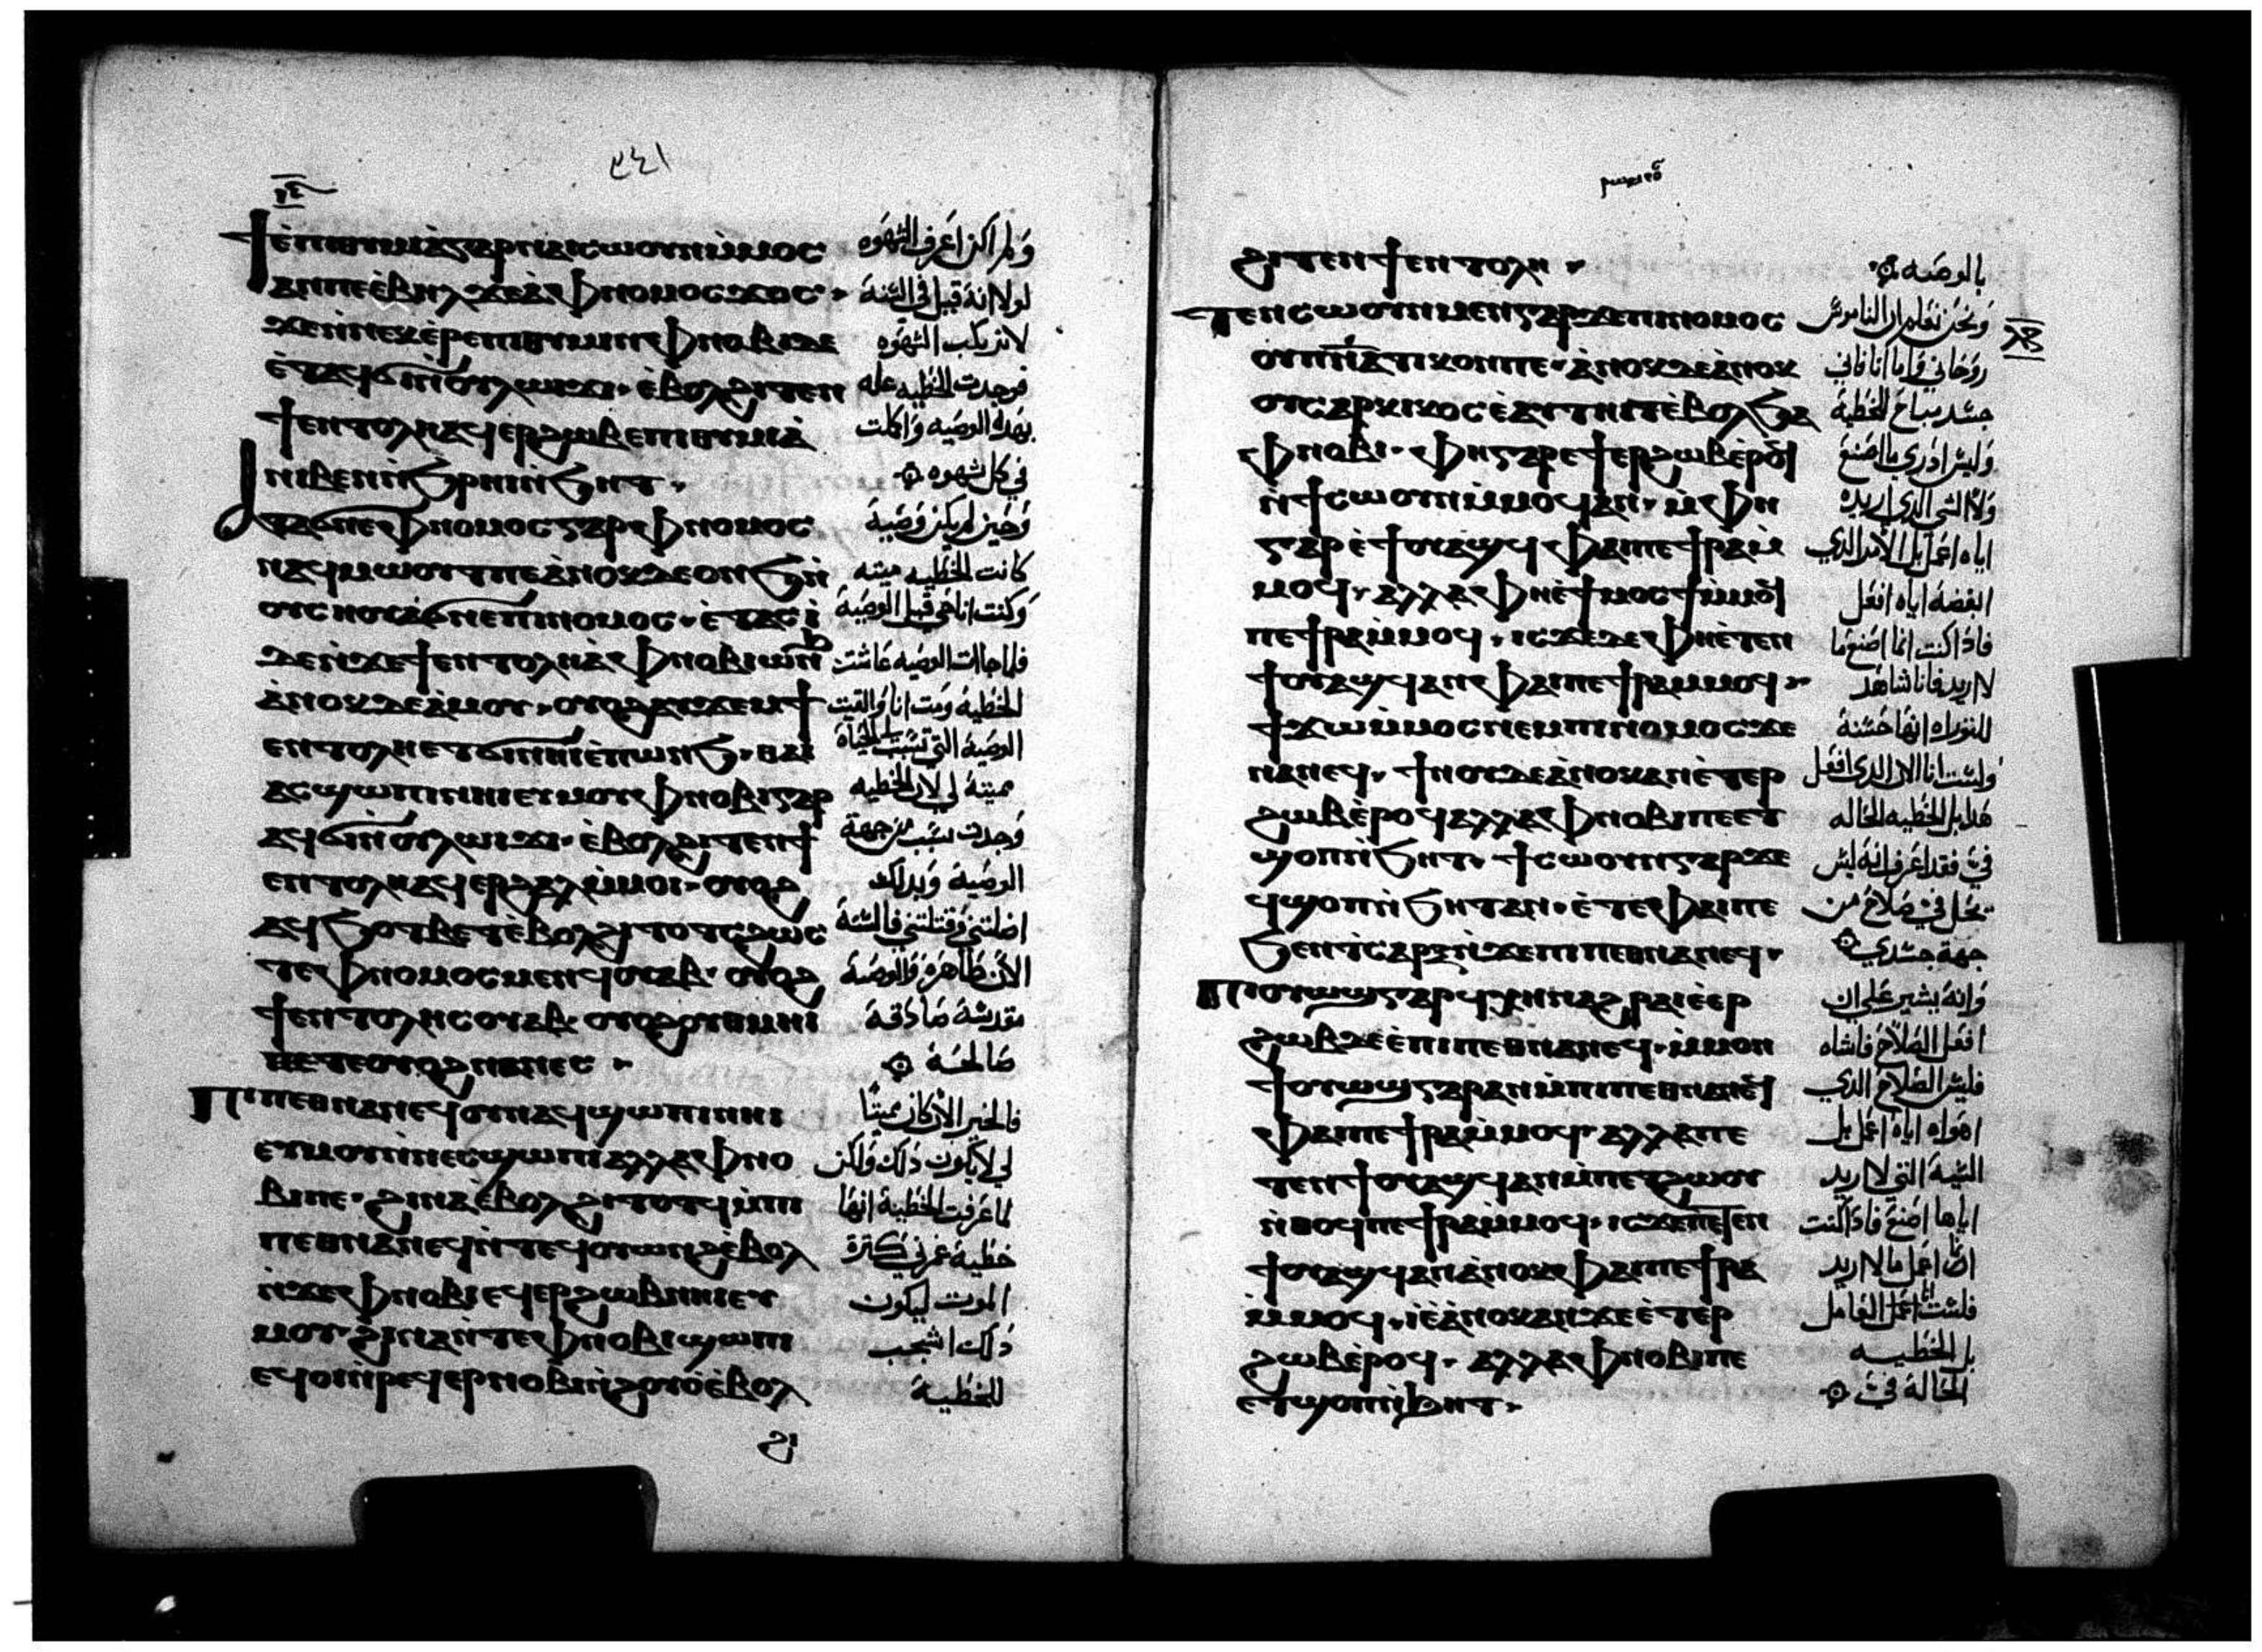 ϯⲉⲡⲓⲑⲩⲙⲓⲁ ⲅⲁⲣ ⲛⲁⲓⲥⲱⲟⲩⲛ ⲙⲙⲟⲥ
ⲁⲛ ⲡⲉ ⲉⲃⲏⲗ ϫⲉ ⲁ ⲫⲛⲟⲙⲟⲥ ϫⲟⲥ
ϫⲉ ⲛⲛⲉⲕⲉⲣⲉⲡⲓⲑⲩⲙⲓⲛ ⲫⲛⲟⲃⲓ ⲇⲉ
ⲉⲧⲁϥϭⲓ ⲛⲟⲩⲗⲱⲓϫⲓ ⲉⲃⲟⲗ ϩⲓⲧⲉⲛ
ϯⲉⲛⲧⲟⲗⲏ ⲁϥⲉⲣϩⲱⲃ ⲉⲡⲓⲑⲩⲙⲓⲁ
ⲛⲓⲃⲉⲛ ⲛϧⲣⲏⲓ ⲛϧⲏⲧ
ⲁⲧϭⲛⲉ ⲫⲛⲟⲙⲟⲥ ⲅⲁⲣ ⲫⲛⲟⲙⲟⲥ
ⲛⲁϥⲙⲱⲟⲩⲧ ⲡⲉ ⲁⲛⲟⲕ ⲇⲉ ⲟⲛϧ ⲛ
ⲟⲩⲥⲛⲟⲩ ⲁϭⲛⲉ ⲡⲓⲛⲟⲙⲟⲥ ⲉⲧⲁⲥⲓ
ⲇⲉ ⲛϫⲉ ϯⲉⲛⲧⲟⲗⲏ ⲁ ⲫⲛⲟⲃⲓ ⲱⲛϧ
ⲁⲛⲟⲕ ⲇⲉ ⲁⲓⲙⲟⲩ ⲟⲩⲟϩ ⲁⲩϫⲉⲙ ϯ
ⲉⲛⲧⲟⲗⲏ ⲉⲧϭⲓ ⲛⲏⲓ ⲉⲡⲱⲛϧ ⲑⲁⲓ
ⲁⲥϣⲱⲡⲓ ⲛⲏⲓ ⲉⲩⲙⲟⲩ ⲫⲛⲟⲃⲓ ⲅⲁⲣ
ⲁϥϭⲓ ⲛⲟⲩⲗⲱⲓϫⲓ ⲉⲃⲟⲗ ϩⲓⲧⲉⲛ ϯ
ⲉⲛⲧⲟⲗⲏ ⲁϥⲉⲣϩⲁⲗ ⲙⲙⲟⲓ ⲟⲩⲟϩ
ⲁϥϧⲟⲑⲃⲉⲧ ⲉⲃⲟⲗ ϩⲓⲧⲟⲧⲥ ϩⲱⲥ
ⲧⲉ ⲫⲛⲟⲙⲟⲥ ⲙⲉⲛ ϥⲟⲩⲁⲃ ⲟⲩⲟϩ
ϯⲉⲛⲧⲟⲗⲏ ⲥⲟⲩⲁⲃ ⲟⲩⲟϩ ⲟⲩⲑⲙⲏⲓ
ⲧⲉ ⲟⲩⲟϩ ⲛⲁⲛⲉⲥ
ⲡⲓⲡⲉⲑⲛⲁⲛⲉϥ ⲟⲩⲛ ⲁϥϣⲱⲡⲓ ⲛⲏⲓ
ⲉⲩⲙⲟⲩ ⲛⲛⲉⲥϣⲱⲡⲓ ⲁⲗⲗⲁ ⲫⲛⲟ
ⲃⲓ ⲡⲉ ϩⲓⲛⲁ ⲉⲃⲟⲗ ϩⲓⲧⲟⲧϥ ⲙⲡⲓ
ⲡⲉⲑⲛⲁⲛⲉϥ ⲛⲧⲉϥⲟⲩⲱⲛϩ ⲉⲃⲟⲗ
ⲛϫⲉ ⲫⲛⲟⲃⲓ ⲉϥⲉⲣϩⲱⲃ ⲛⲏⲓ ⲉⲩ
ⲙⲟⲩ ϩⲓⲛⲁ ⲛⲧⲉ ⲫⲛⲟⲃⲓ ϣⲱⲡⲓ
ⲉϥⲟⲓ ⲛⲣⲉϥⲉⲣⲛⲟⲃⲓ ⲛϩⲟⲩⲟ ⲉⲃⲟⲗ
ϩⲓ
٣٤١
ولم اكن اعرف الشهوه
لولا انه قيل في السنة
لا تركب الشهوه
فوجدت الخطيه علة
بهذه الوصيه واكملت
في كل شهوه
وحين لم يكن وصية
كانت الخطيه ميته
وكنت انا حي قبل الوصية
فلما جاات الوصيه عاشت
الخطية ومت انا والقيت
الوصية التي تسبب للحياة
ميتة لي لان الخطيه
وجدت سبب من جهة
الوصية وبذلك
اضلتني وقتلتني فالسنة
الان طاهره والوصية
مقدسة صادقة
صالحة
فالخير الان كان ميتا
لي لا يكون ذلك ولكن
لما عرفت الخطية انها
خطية
الموت ليكون
ذلك اشجب
للخطية
ϩⲓⲧⲉⲛ ϯⲉⲛⲧⲟⲗⲏ
ⲧⲉⲛⲥⲱⲟⲩⲛ ⲙⲉⲛ ⲅⲁⲣ ϫⲉ ⲡⲓⲛⲟⲙⲟⲥ
ⲟⲩⲡⲛⲁⲧⲓⲕⲟⲛ ⲡⲉ ⲁⲛⲟⲕ ⲇⲉ ⲁⲛⲟⲕ
ⲟⲩⲥⲁⲣⲕⲓⲕⲟⲥ ⲉⲁⲩⲧⲏⲓⲧ ⲉⲃⲟⲗ ϧⲁ
ⲫⲛⲟⲃⲓ ⲫⲏ ⲅⲁⲣ ⲉϯⲉⲣϩⲱⲃ ⲉⲣⲟϥ
ⲛϯⲥⲱⲟⲩⲛ ⲙⲙⲟϥ ⲁⲛ ⲙⲫⲏ
ⲅⲁⲣ ⲉϯⲟⲩⲁϣϥ ⲫⲁⲓ ⲡⲉ ϯⲣⲁ ⲙ
ⲙⲟϥ ⲁⲗⲗⲁ ⲫⲏ ⲉϯⲙⲟⲥϯ ⲙⲙⲟϥ
ⲡⲉ ϯⲣⲁ ⲙⲙⲟϥ ⲓⲥϫⲉ ⲇⲉ ⲫⲏ ⲉⲧⲉⲛ
ϯⲟⲩⲁϣϥ ⲁⲛ ⲫⲁⲓ ⲡⲉ ϯⲣⲁ ⲙⲙⲟϥ
ϯϫⲱ ⲙⲙⲟⲥ ⲛⲉⲙ ⲡⲓⲛⲟⲙⲟⲥ ϫⲉ
ⲛⲁⲛⲉϥ ϯⲛⲟⲩ ⲇⲉ ⲁⲛⲟⲕ ⲁⲛ ⲉⲧⲉⲣ
ϩⲱⲃ ⲉⲣⲟϥ ⲁⲗⲗⲁ ⲫⲛⲟⲃⲓ ⲡⲉ ⲉⲧ
ϣⲟⲡ ⲛϧⲏⲧ ϯⲥⲱⲟⲩⲛ ⲅⲁⲣ ϫⲉ
ϥϣⲟⲡ ⲛϧⲏⲧ ⲁⲛ ⲉⲧⲉ ⲫⲁⲓ ⲡⲉ
ϧⲉⲛ ⲧⲁⲥⲁⲣⲝ ⲛϫⲉ ⲡⲓⲡⲉⲑⲛⲁⲛⲉϥ
ⲡⲓⲟⲩⲱϣ ⲅⲁⲣ ϥⲭⲏ ⲛⲁϩⲣⲁⲓ ⲉⲉⲣ
ϩⲱⲃ ⲇⲉ ⲉⲡⲓⲡⲉⲑⲛⲁⲛⲉϥ ⲙⲙⲟⲛ
ϯⲟⲩⲱϣ ⲅⲁⲣ ⲁⲛ ⲙⲡⲓⲡⲉⲑⲛⲁⲛⲉϥ
ⲫⲁⲓ ⲡⲉ ϯⲣⲁ ⲙⲙⲟϥ ⲁⲗⲗⲁ ⲡⲉ
ⲧⲉⲛϯⲟⲩⲁϣϥ ⲁⲛ ⲙⲡⲉⲧϩⲱⲟⲩ
ⲛⲑⲟϥ ⲡⲉ ϯⲣⲁ ⲙⲙⲟϥ ⲓⲥϫⲉ ⲡⲉⲧⲉⲛ
ϯⲟⲩⲁϣϥ ⲁⲛ ⲁⲛⲟⲕ ⲫⲁⲓ ⲡⲉ ϯⲣⲁ
ⲙⲙⲟϥ ⲓⲉ ⲁⲛⲟⲕ ⲁⲛ ϫⲉ ⲉⲧⲉⲣ
ϩⲱⲃ ⲉⲣⲟϥ ⲁⲗⲗⲁ ⲫⲛⲟⲃⲓ ⲡⲉ
ⲉⲧϣⲟⲡ ⲛϧⲏⲧ
بالوصيه
ونحن نعلم ان الناموس
روحاني واما انا فاني
جسد مباع للخطية
وليس ادري ما اصنع
ولا الشي الذي اريده
اياه اعمل بل الامر الذي
ابغضه اياه افعل
فاذا كنت انما اصنع ما
لا اريد فانا شاهد
للتوراه انها حسنة
ولست انا الان الذي افعل
هذا بل الخطيه الحاله
في فقد اعرف انه ليس
يحل في صلاح من
جهة جسدي
وانه يشير علي ان
افعل الصلاح فاشاه
فليس الصلاح الذي
اهواه اياه اعمل بل
السية التي لا اريد
اياها اصنع فاذا كنت
انا اعمل ما لا اريد
فلست انا اعمل
بل الخطيه
الحالة في